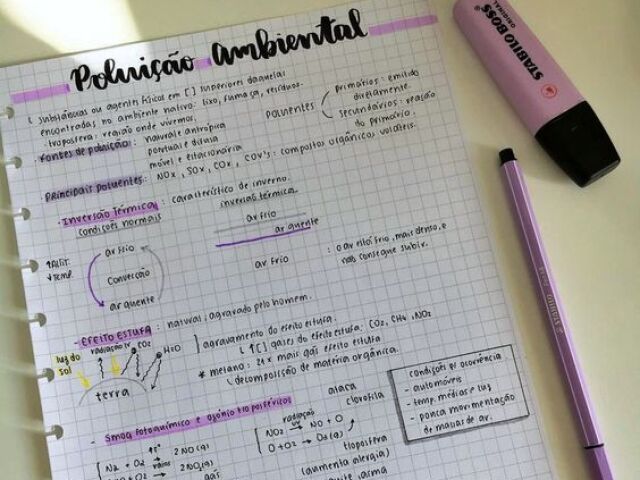 Poluição Ambiental
substâncias ou agentes físicos em [ ] superiores daquelas
encontradas no ambiente nativo: lixo, fumaça, resíduos.
· troposfera: região onde vivemos.
poluentes
primários: emitido
diretamente.
secundários: reação
do primário.
· Fontes de poluição: natural e antrópica
pontual e difusa
móvel e estacionária
· Principais poluentes: NOx, SOx, COx, COV's: compostos orgânicos voláteis.
- Inversão Térmica: característico de inverno.
condições normais
inversão térmica
ar frio
ar quente
ar frio
: o ar está frio, mais denso, e
não consegue subir.
↑ALTIT.
↓TEMP.
ar frio
Convecção
ar quente
- EFEITO ESTUFA: natural, agravado pelo homem.
luz do
sol
radiação IV CO2 H2O
terra
agravamento do efeito estufa.
↑[ ] gases do efeito estufa: CO2, CH4, NO2
* metano: 21x mais gás efeito estufa
decomposição de matéria orgânica.
- Smog fotoquímico e ozônio troposférico
N2 + O2 → 2NO(g)
raios
→ 2NO2(g)
radiação
NO2 → NO + O
UV
O + O2 → O3(g)
ataca
clorofila
troposfera
(aumenta alergia)
asma
condições p/ ocorrência
- automóveis
- temp. médias e luz
- pouca movimentação
de massas de ar.
STABILO BOSS
ORIGINAL
STABILO